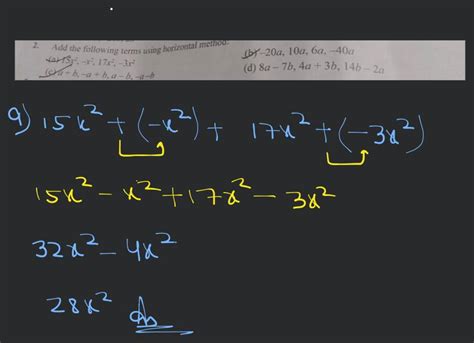 2. Add the following terms using horizontal method.
(a) 15x², -x², 17x², -3x² (b) -20a, 10a, 6a, -40a
(c) a + b, -a + b, a - b, -a-b (d) 8a - 7b, 4a + 3b, 14b - 2a
a) 15x² + (-x²) + 17x² + (-3x²)
15x² - x² + 17x² - 3x²
32x² - 4x²
28x² Ans